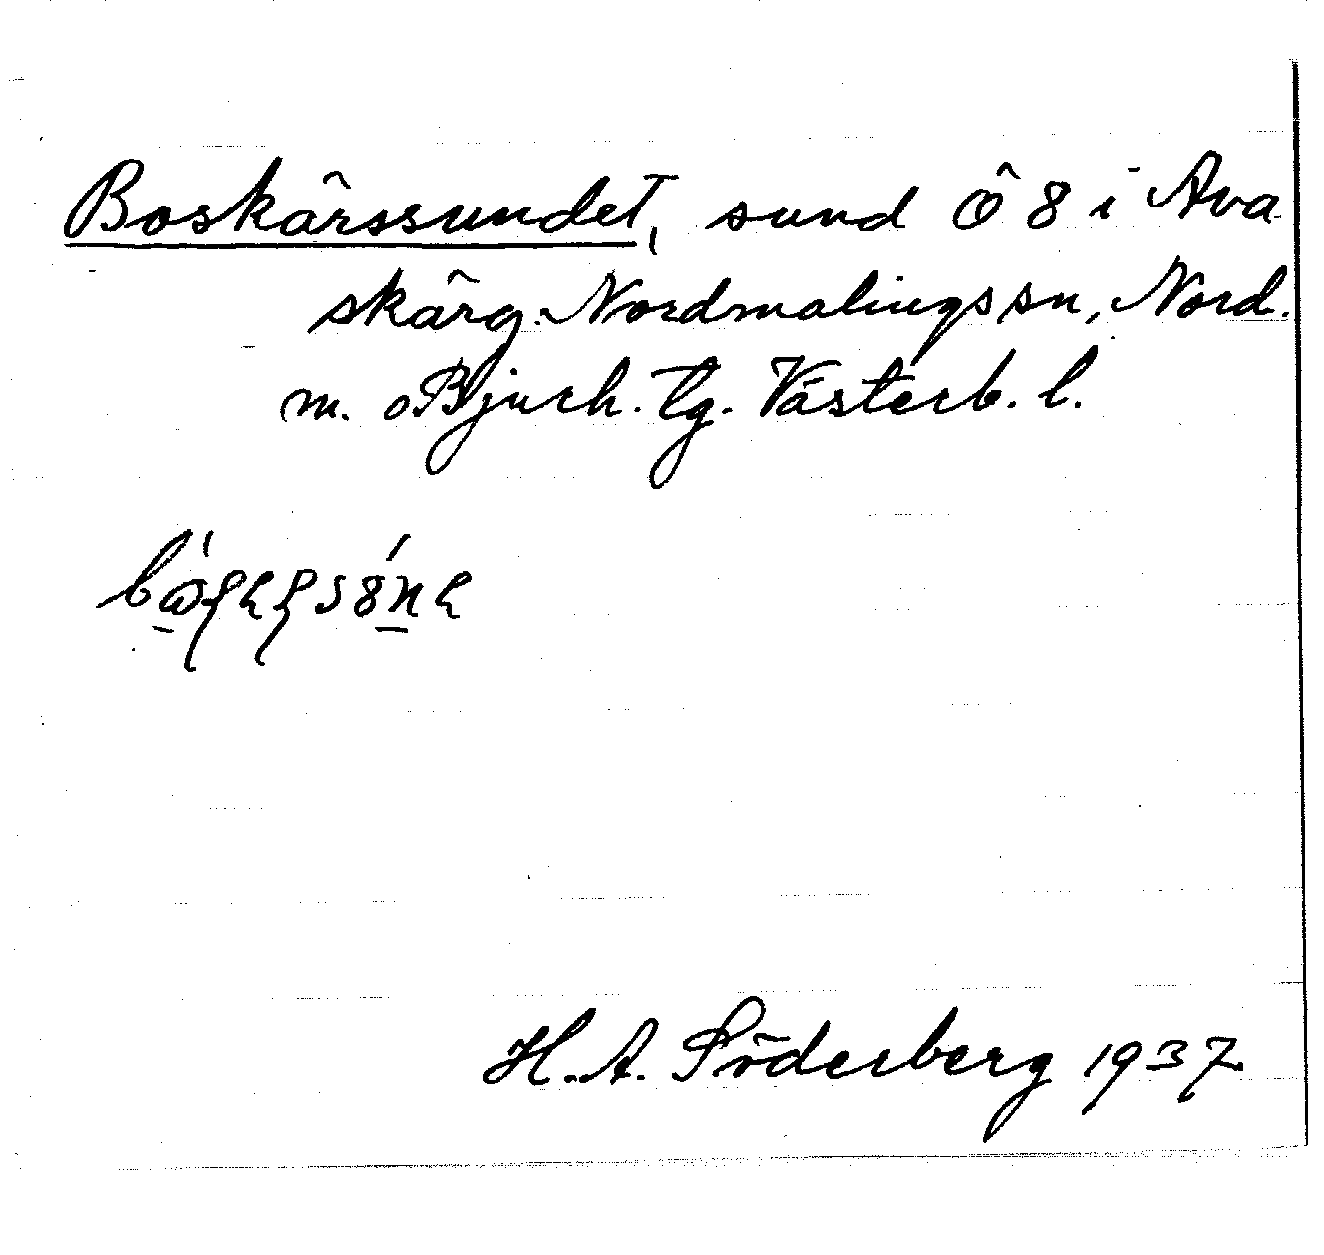 Boskärssundet, sund Ö 8 i Ava
skärg. Nordmalings sn, Nord.
m. o Bjurh. tg. Västerb. l.
H. A. Söderberg 1937